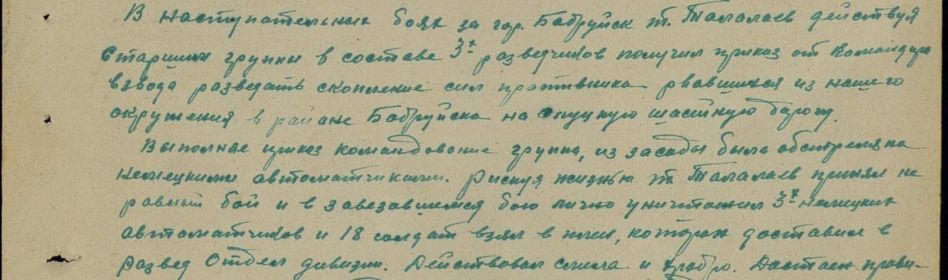 В наступательных боях за гор. Бабруйск т. Талалаев действуя
старшим группы в составе 3х разведчиков получил приказ от командира
взвода разведать скопление сил противника рвавшихся из нашего
окружения в районе Бабруйска на шасейную дарогу.
Выполняе приказ командование группа, из засады была абстреляна
немецкими автоматчиками. Рискуя жизнью т. Талалаев принял не
равный бой и в завезавшемся бою лично уничтажил 3х немецких
автоматчиков и 18 солдат взял в плен, которых доставил в
развед Отдел дивизии. Действовал смело и храбро. Дастоен прави-